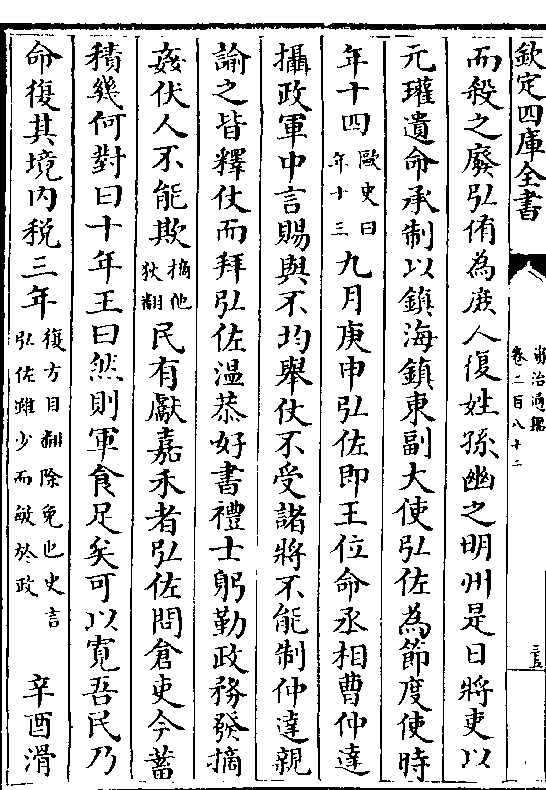 欽定四庫全書
資治通鑑
卷二百八十二
而殺之廢弘侑為庶人復姓孫幽之明州是日將吏以
元瓘遺命承制以鎮海鎮東副大使弘佐為節度使時
年十四歐史曰年十三九月庚申弘佐即王位命丞相曹仲達
攝政軍中言賜與不均舉仗不受諸將不能制仲達親
諭之皆釋仗而拜弘佐温恭好書禮士躬勤政務發摘
姦伏人不能欺摘他狄翻民有獻嘉禾者弘佐問倉吏今蓄
積幾何對曰十年王曰然則軍食足矣可以寛吾民乃
命復其境内税三年復方目翻除免也史言弘佐雖少而敏於政辛酉滑